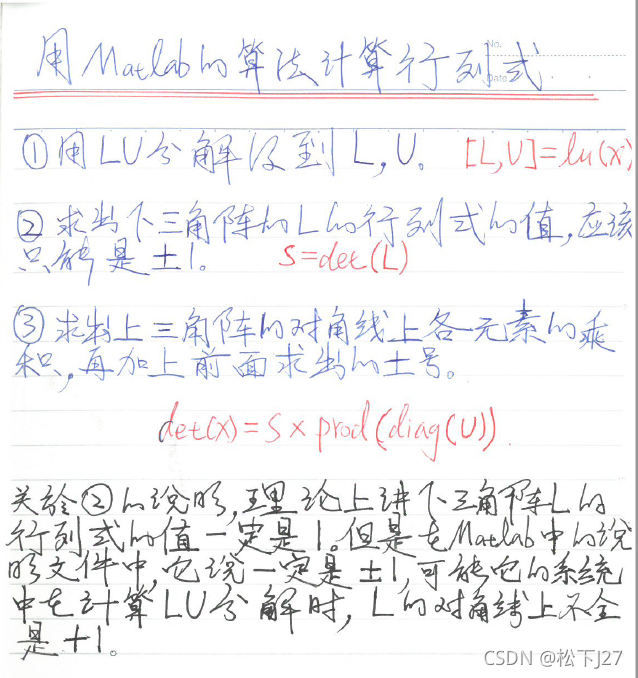 用Matlab的算法计算行列式
No.
Date
①用LU分解得到L,U。 [L,U]=lu(x)
②求出下三角阵的L的行列式的值,应该
只能是±1。 S=det(L)
③求出上三角阵的对角线上各元素的乘
积,再加上前面求出的±号。
det(x)=S×prod(diag(U)).
关於②的说明,理论上讲下三角阵L的
行列式的值一定是1。但是在Matlab中的说
明文件中,它说一定是±1,可能它的系统
中在计算LU分解时,L的对角线上不全
是+1。
CSDN @松下J27